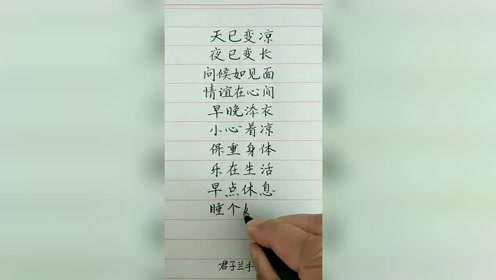 天已变凉
夜已变长
问候如见面
情谊在心间
早晚添衣
小心着凉
保重身体
乐在生活
早点休息
睡个
君子兰手